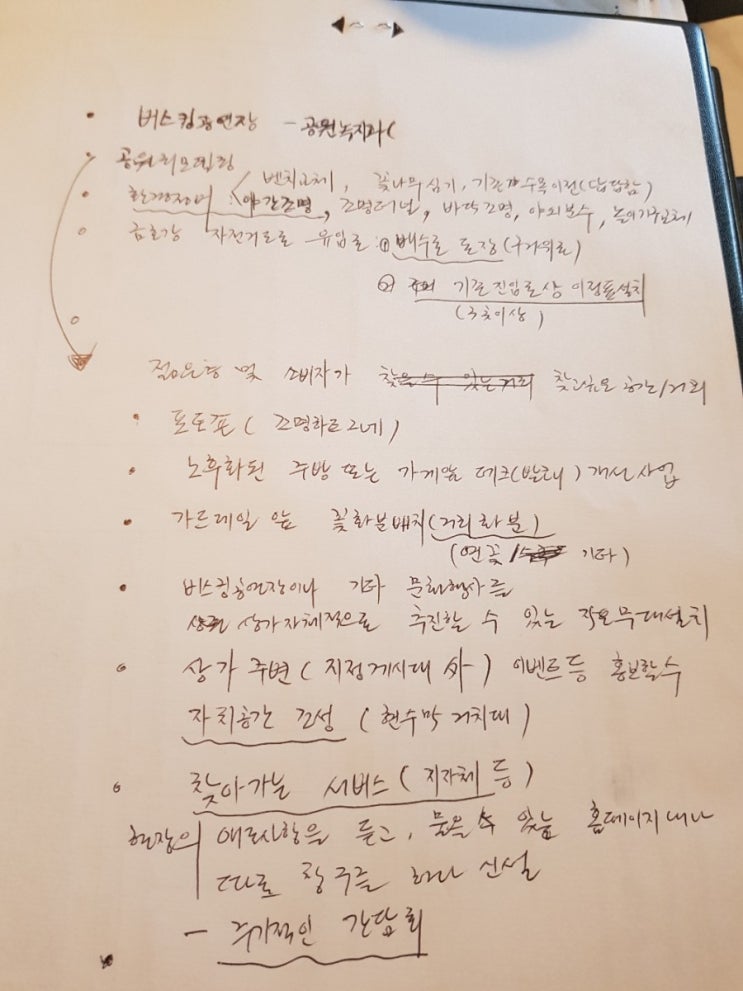 버스킹공연장 - 공원녹지과(
공원리모델링
환경정비 < 벤치교체, 꽃나무심기, 기존 수목이전(답답함)
야간조명, 조명터널, 바닥조명, 야외분수, 놀이기구교체
금호강 자전거도로 유입로: ① 배수로 포장(구거위로)
② 기존진입로상 이정표설치
(3곳이상)
젊은층 및 소비자가 찾을 수 있는거리 찾고싶은 거리
포토존 ( 조명하트그네)
노후화된 주방 또는 가게앞 데크(발코니) 개선사업
가드레일 앞 꽃화분배치(거리화분)
(연꽃/ 기타)
버스킹공연장이나 기타 문화행사를
상권 상가자체적으로 추진할 수 있는 작은무대설치
상가 주변 ( 지정게시대 外) 이벤트등 홍보할수
자치공간 조성 (현수막 거치대)
찾아가는 서비스 (지자체 등)
현장의 애로사항을 듣고, 묻을 수 있는 홈페이지내나
따로 창구를 하나 신설
- 주기적인 간담회